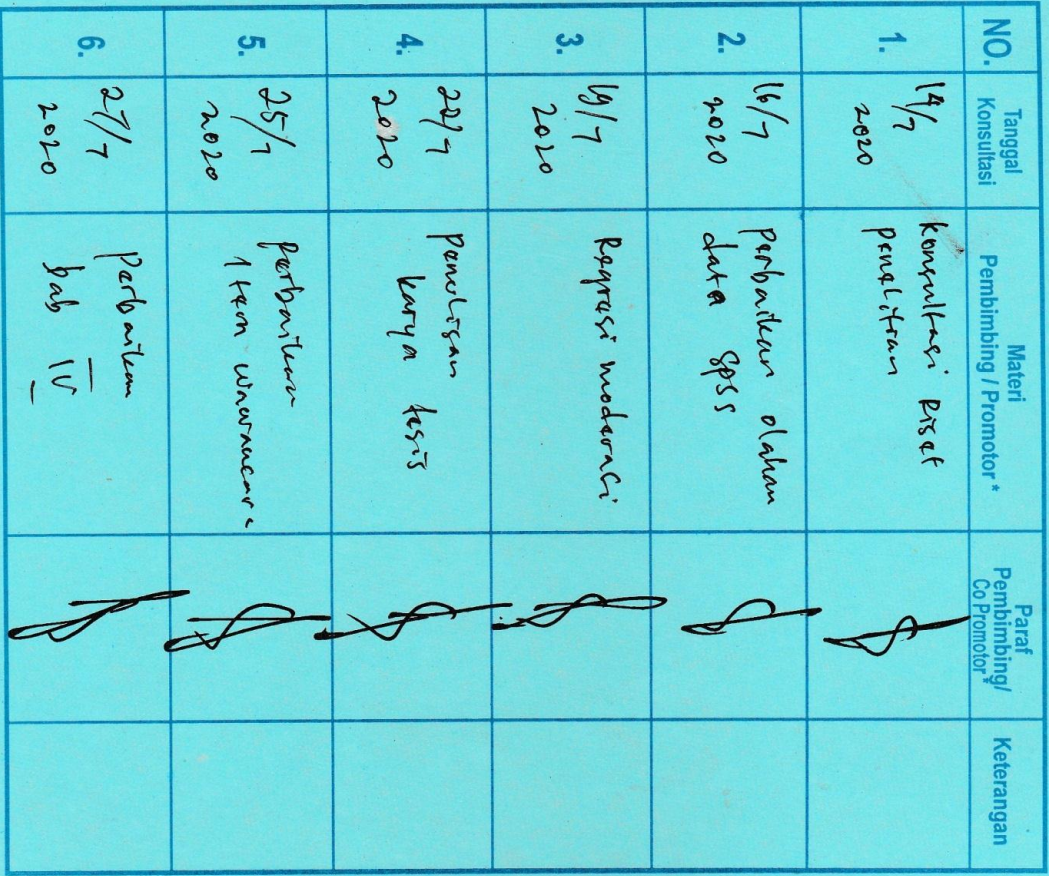 NO.
Tanggal
Konsultasi
Materi
Pembimbing / Promotor *
Paraf
Pembimbing/
Co Promotor *
Keterangan
1.
14/7
2020
konsultasi Riset
penelitian
2.
16/7
2020
perbaikan olahan
data SPSS
3.
19/7
2020
Regresi moderasi
4.
22/7
2020
penulisan
karya tesis
5.
25/7
2020
perbaikan
item wawancara
6.
27/7
2020
perbaikan
bab IV